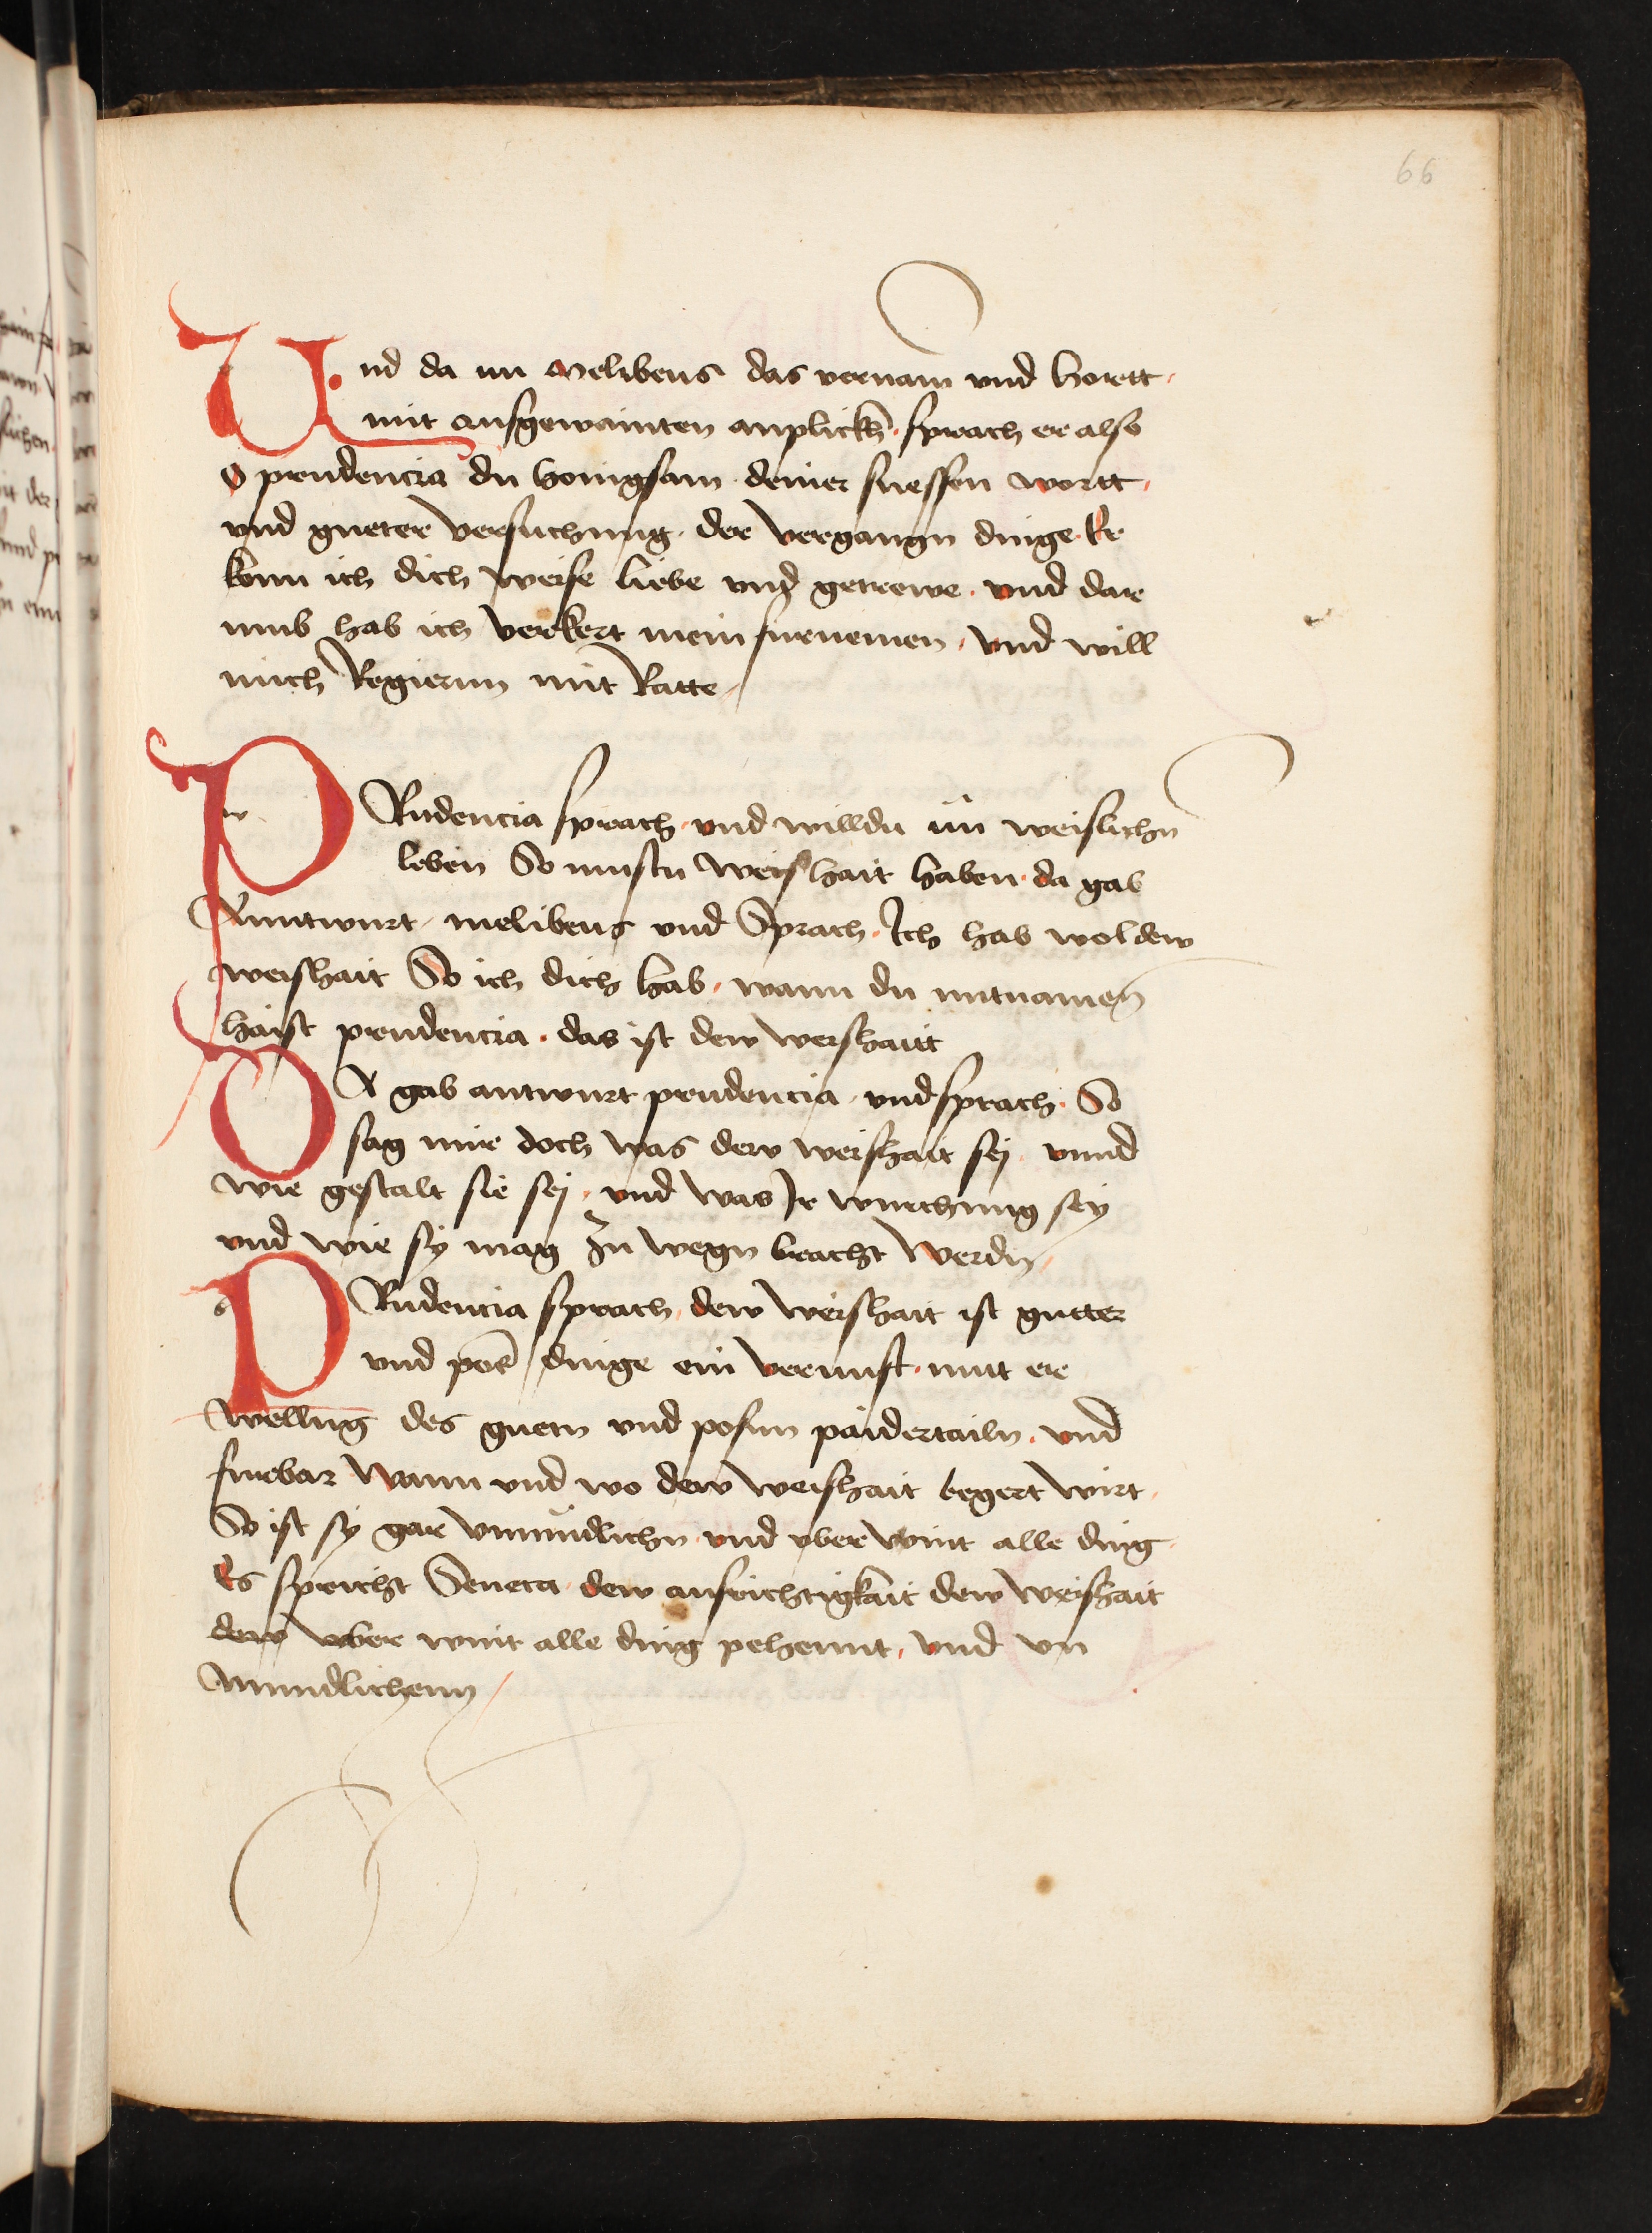 66
Und da nu Melibeus das vernam und horett
mit ausgewainten anplickh sprach er also
O prudencia du honigsam deiner suessen wortt
vnd gueter versuchung der vergangn dinge Er
kenn ich dich weise liebe vnd getrewe vnd dar
umb hab ich verkert mein furnemen vnd will
mich Regiernn mit Ratte
PRudencia sprach vnd willdu nu weislichn
leben So mustu weishait haben da gab
Anntwurt melibeus vnd Sprach Ich hab wol dew
weishait So ich dich hab wann du mit namen
haist prudencia das ist dew weishaitt
DA gab antwurt prudencia vnd sprach So
sag mir doch was dew weishait sej vnnd
wie gestalt sie sej vnd was Ir wurchung sey
vnd wie sy mag zu wegn bracht werdn
PRudencia sprach dew weishait ist gutter
vnd poser dinge ein vernunft mit er
wellung des guetn vnd posnn paidertailn vnd
furbar wann vnd wo dew weishait begert wirt
So ist sy gar vnmindlichn vnd vber wint alle ding
Es spricht Seneca dew aufrichtigkait dew weishait
dew vber wint alle ding pehennt vnd vn
mindlichenn